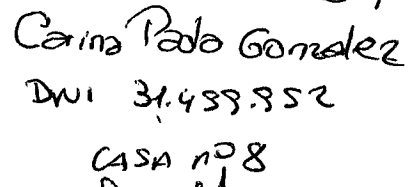 Carina Paola Gonzalez
DNI 31.499.952
CASA nº 8